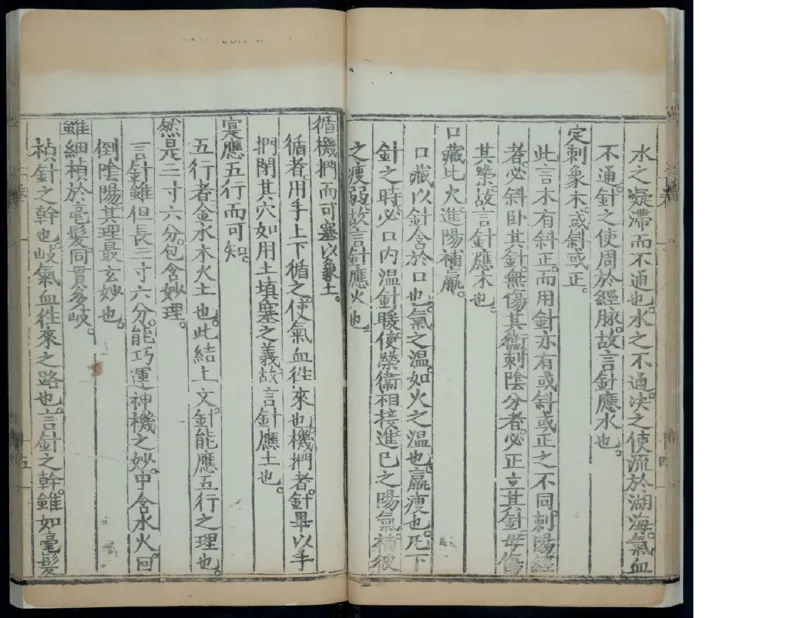 水之凝滯而不通也。水之不通決之使流於湖海。氣血
不通針之使周於經脉。故言針應水也。
定刺象木或斜或正。
此言木有斜正。而用針亦有或斜或正之不同。刺陽經
者。必斜卧其針無傷其衞。刺陰分者。必正立其針毋傷
其榮。故言針應木也。
口藏比火進陽補羸。
口藏以針含於口也。氣之溫。如火之溫也。羸瘦也。凡下
針之時。必口內溫針暖。使榮衞相接進己之陽氣補彼
之瘦弱。故言針應火也。
循機捫而可塞以象土。
循者。用手上下循之。使氣血徃來也。機捫者。針畢以手
捫閉其穴如用土填塞之義。故言針應土也。
寔應五行而可知。
五行者金水木火土也。此結上文針能應五行之理也。
然是三寸六分。包含妙理。
言針雖但長三寸六分。能巧運神機之妙。中含水火。回
倒陰陽其理最玄妙也。
雖細楨於毫髮同貫多岐。
楨針之幹也。岐氣血徃來之路也。言針之幹雖如毫髮